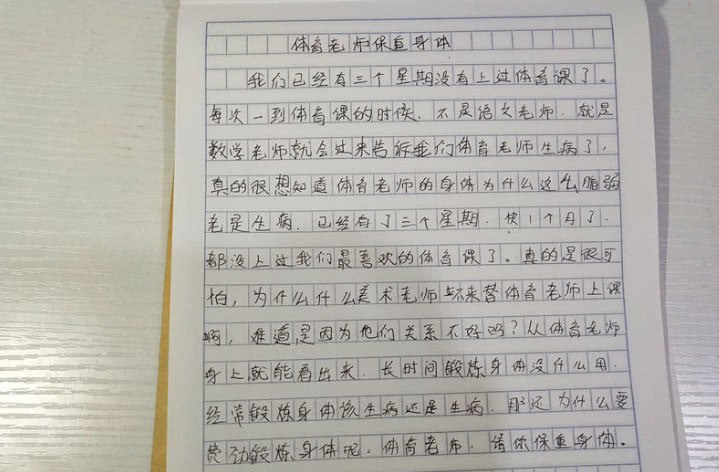 体育老师保重身体
我们已经有三个星期没有上过体育课了。
每次一到体育课的时候，不是语文老师，就是
数学老师就会过来告诉我们体育老师生病了，
真的很想知道体育老师的身体为什么这么脆弱
老是生病，已经有了三个星期，快1个月了，
都没上过我们最喜欢的体育课了。真的是很可
怕，为什么什么美术老师都来替体育老师上课
啊，难道是因为他们关系不好吗？从体育老师
身上就能看出来，长时间锻炼身体没什么用，
经常锻炼身体该生病还是生病，那还为什么要
劳动锻炼身体呢，体育老师，请你保重身体。